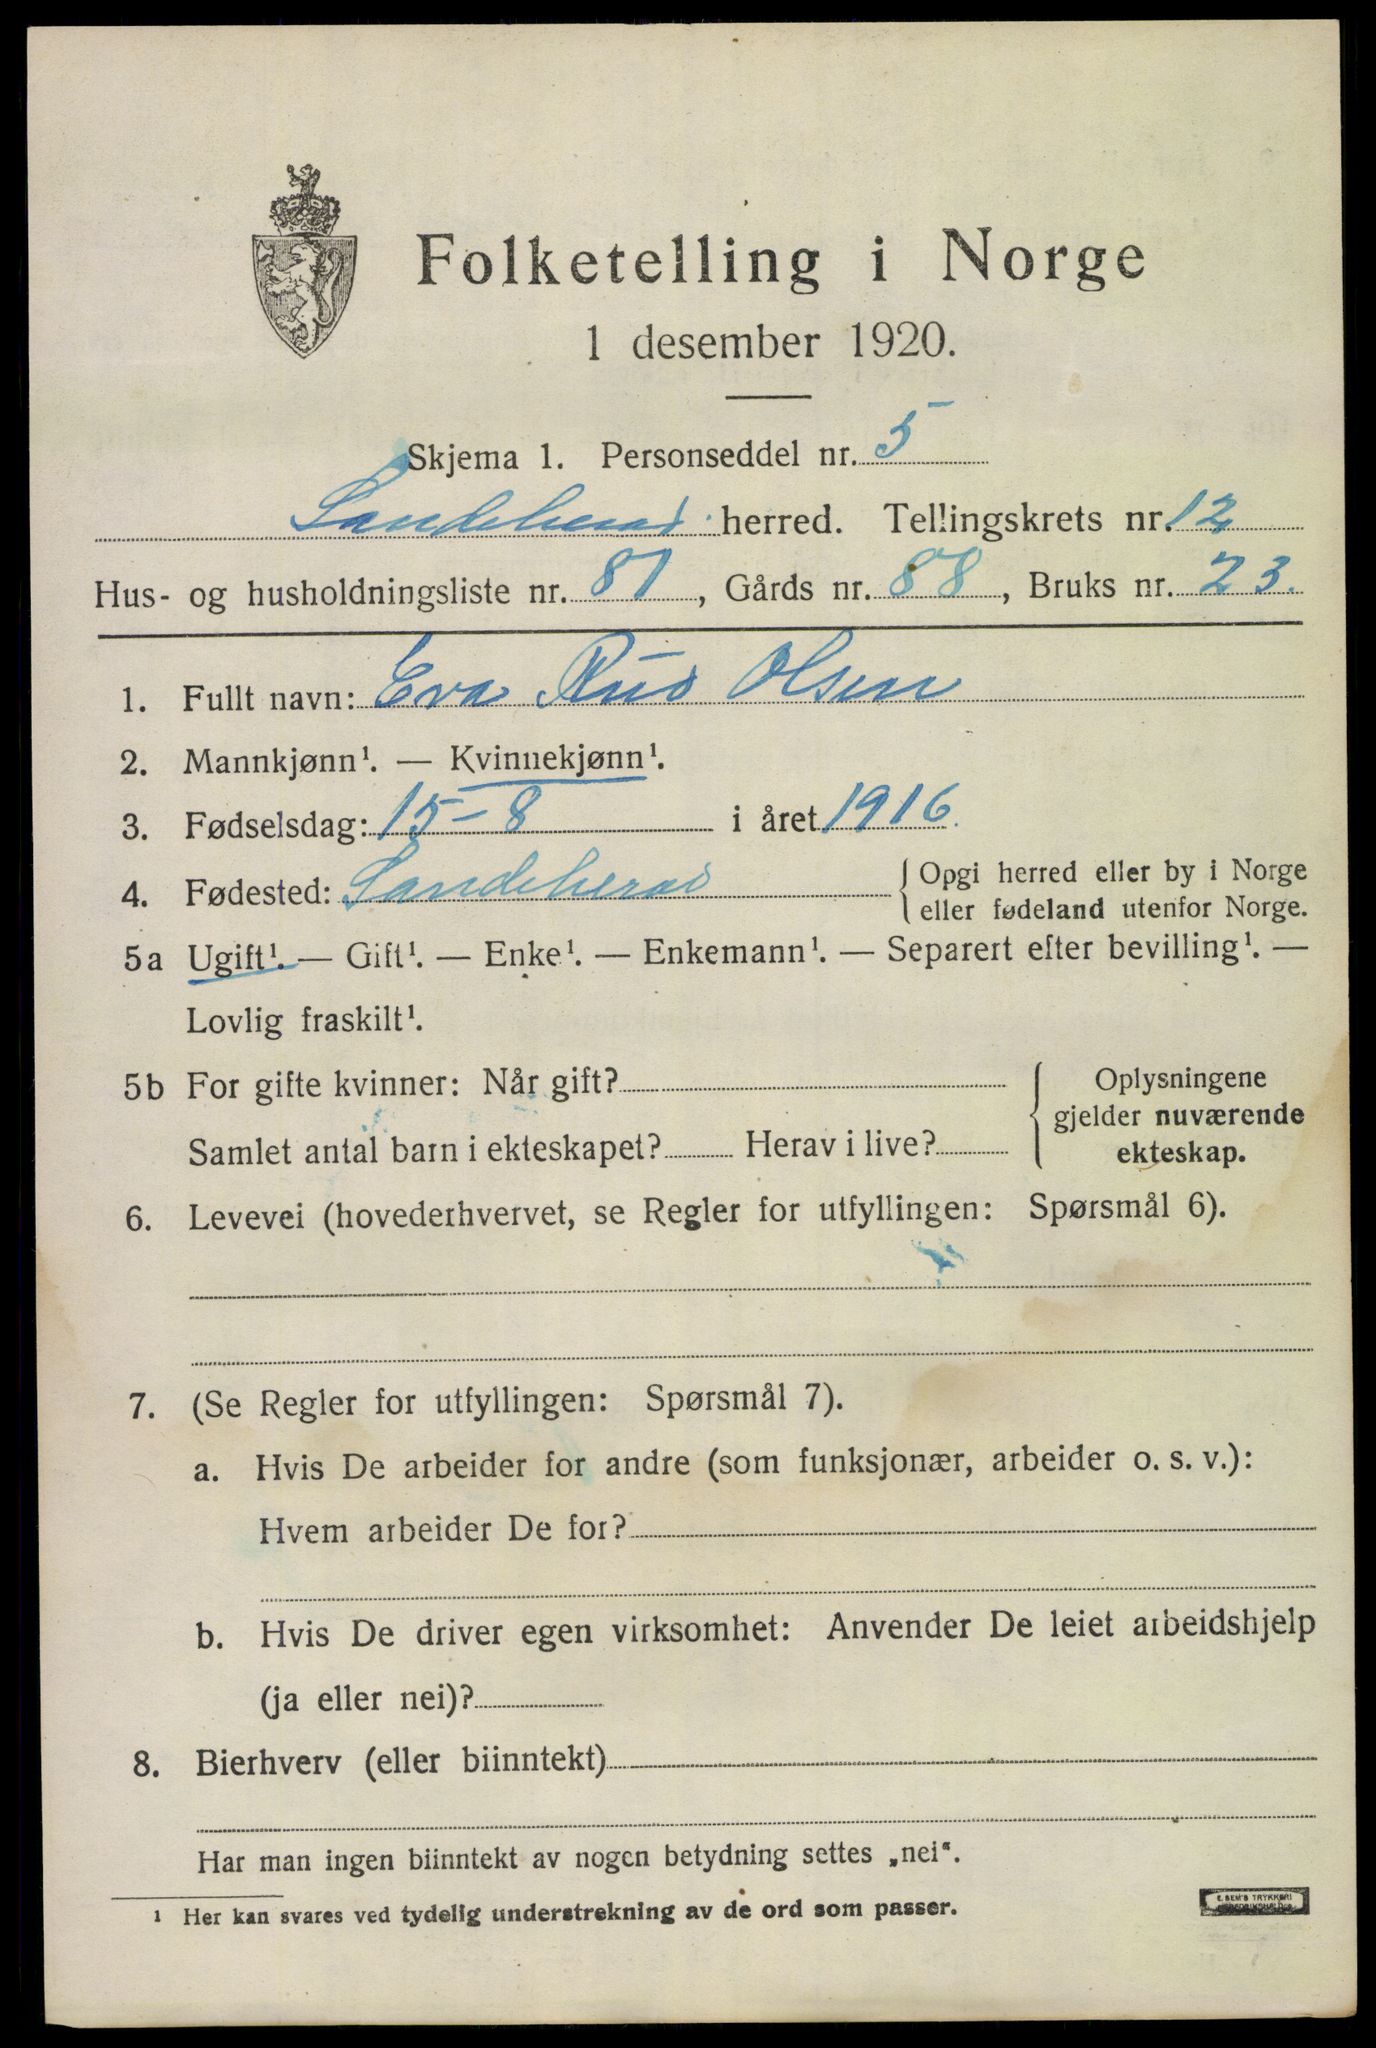 Folketelling i Norge
1 desember 1920.
Skjema 1. Personseddel nr. 5
Sandeherad herred. Tellingskrets nr. 12
Hus- og husholdningsliste nr. 81, Gårds nr. 88, Bruks nr. 23.
1. Fullt navn: Eva Ruud Olsen
2. Mannkjønn¹. — Kvinnekjønn¹.
3. Fødselsdag: 15-8 i året 1916.
4. Fødested: Sandeherad { Opgi herred eller by i Norge
eller fødeland utenfor Norge.
5a Ugift¹. — Gift¹. — Enke¹. — Enkemann¹. — Separert efter bevilling¹. —
Lovlig fraskilt¹.
5b For gifte kvinner: Når gift?
Samlet antal barn i ekteskapet? Herav i live?
Oplysningene
gjelder nuværende
ekteskap.
6. Levevei (hovederhvervet, se Regler for utfyllingen: Spørsmål 6).
7. (Se Regler for utfyllingen: Spørsmål 7).
a. Hvis De arbeider for andre (som funksjonær, arbeider o. s. v.):
Hvem arbeider De for?
b. Hvis De driver egen virksomhet: Anvender De leiet arbeidshjelp
(ja eller nei)?
8. Bierhverv (eller biinntekt)
Har man ingen biinntekt av nogen betydning settes „nei".
¹ Her kan svares ved tydelig understrekning av de ord som passer.
E. SEM'S TRYKKERI